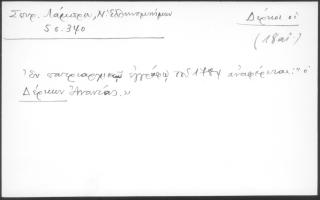 Σπυρ. Λάμπρου, Ν. Ἑλληνομνήμων
Δέρκοι οἱ
56-340
(18 αἰ)
"Ἐν πατριαρχικῷ ἐγγράφῳ τοῦ 1784 ἀναφέρεται: "ὁ
Δέρκων Ἀνανίας."